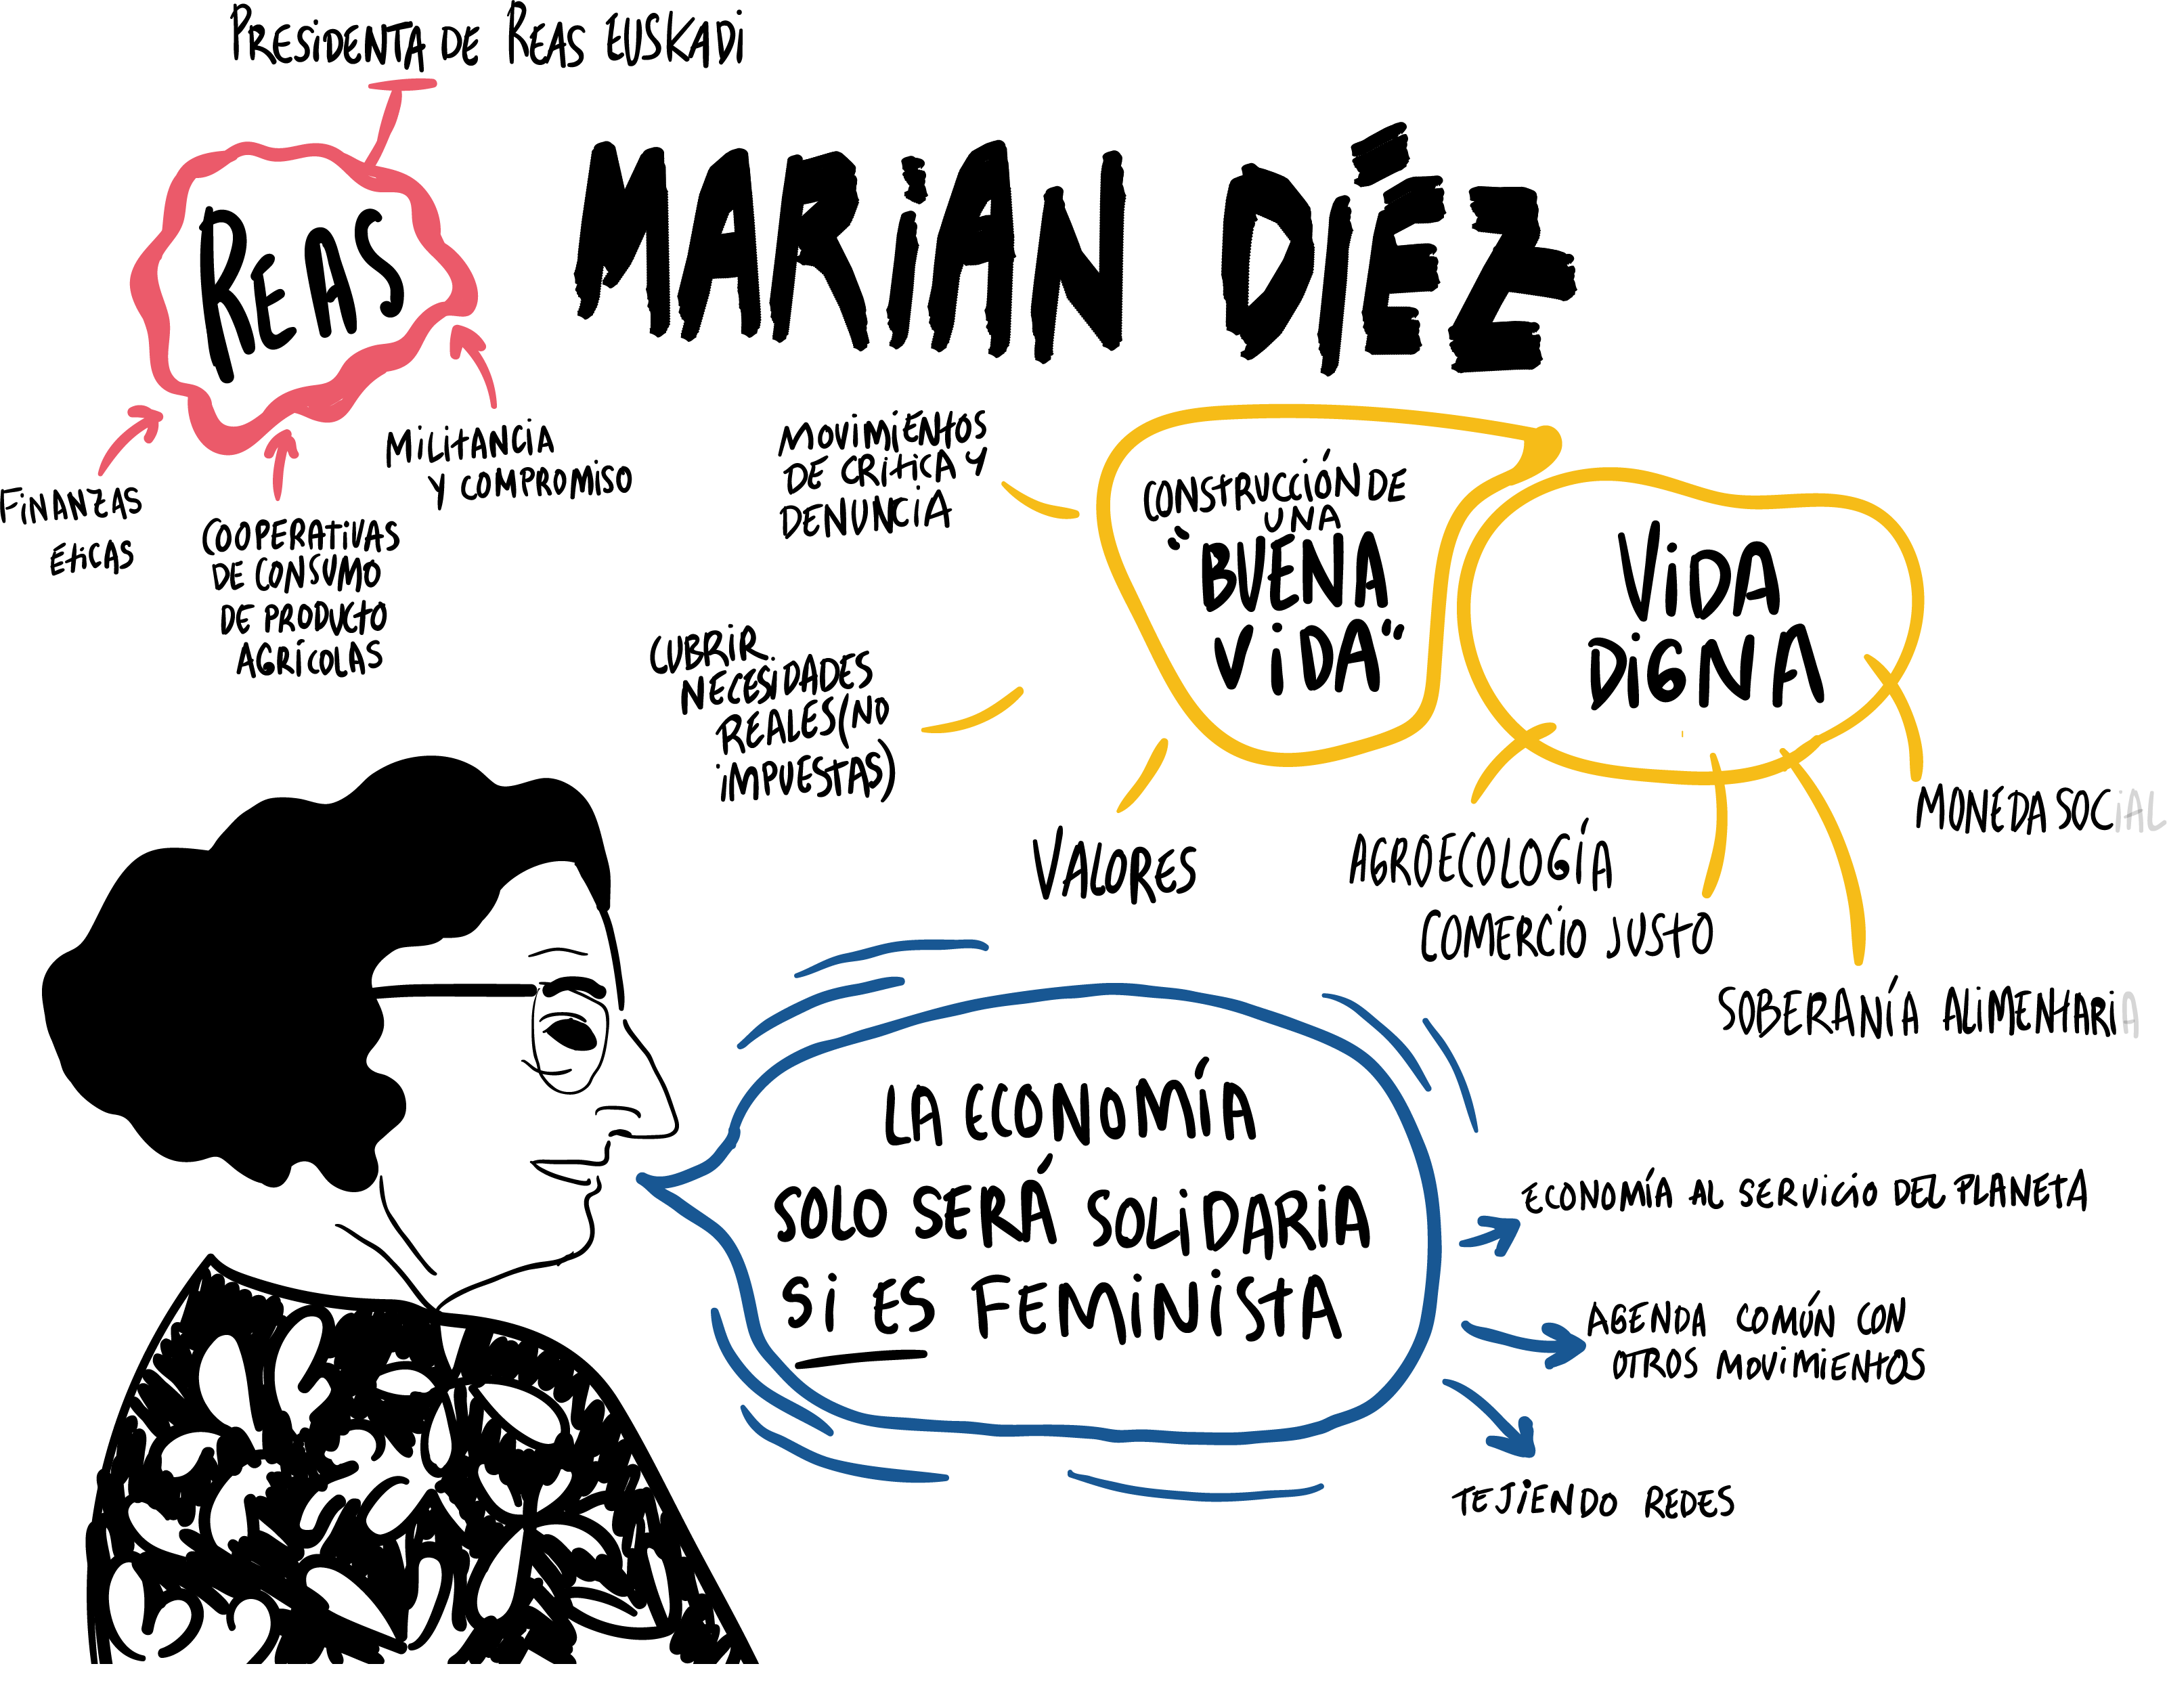 PRESIDENTA DE REAS EUSKADI
REAS
MARIAN DÍEZ
FINANZAS
ÉTICAS
COOPERATIVAS
DE CONSUMO
DE PRODUCTO
AGRÍCOLAS
MILITANCIA
Y COMPROMISO
MOVIMIENTOS
DE CRITICA Y
DENUNCIA
CUBRIR
NECESIDADES
REALES (NO
IMPUESTAS)
VALORES
CONSTRUCCIÓN DE
UNA
"BUENA
VIDA"
VIDA
DIGNA
AGROECOLOGÍA
COMERCIO JUSTO
SOBERANÍA ALIMENTARIA
MONEDA SOCIAL
LA ECONOMÍA
SOLO SERÁ SOLIDARIA
SI ES FEMINISTA
ECONOMÍA AL SERVICIO DEL PLANETA
AGENDA COMÚN CON
OTROS MOVIMIENTOS
TEJIENDO REDES